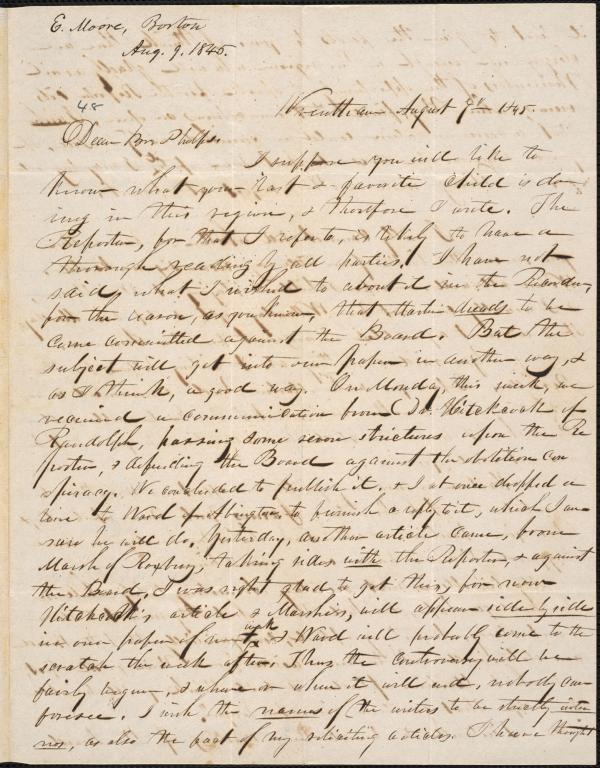 E. Moore, Boston
Aug. 9. 1845.
48
Wrentham August 9th 1845
Dear Bro Phelps.
I suppose you will like to
know what your last & favorite child is do-
ing in this region, & therefore I write. The
Reporter, for that I refer to, is likely to have a
thorough reading by all parties. I have not
said what I wished to about it in the Recorder,
for the reason, as you know, that Martin dreads to be
come committed against the Board. But the
subject will get into our paper in another way, &
as I think, a good way. On Monday, this week, we
received a communication from Dr. Hitchcock of
Randolph, passing some severe strictures upon the Re
porter, & defending the Board against the abolition con
spiracy. We concluded to publish it. & I at once dropped a
line to Ward of Abington, to furnish a reply to it, which I am
sure he will do. Yesterday, another article came, from
Marsh of Roxbury, taking sides with the Reporter, & against
the Board. I was right glad to get this, for now
Hitchcock's article & Marsh's, will appear side by side
in our paper of next week & Ward will probably come to the
scratch the week after. Thus the controversy will be
fairly begun, & where or when it will end, nobody can
foresee. I wish the names of the writers to be strictly inter
nos, as also the fact of my soliciting articles. I have thought